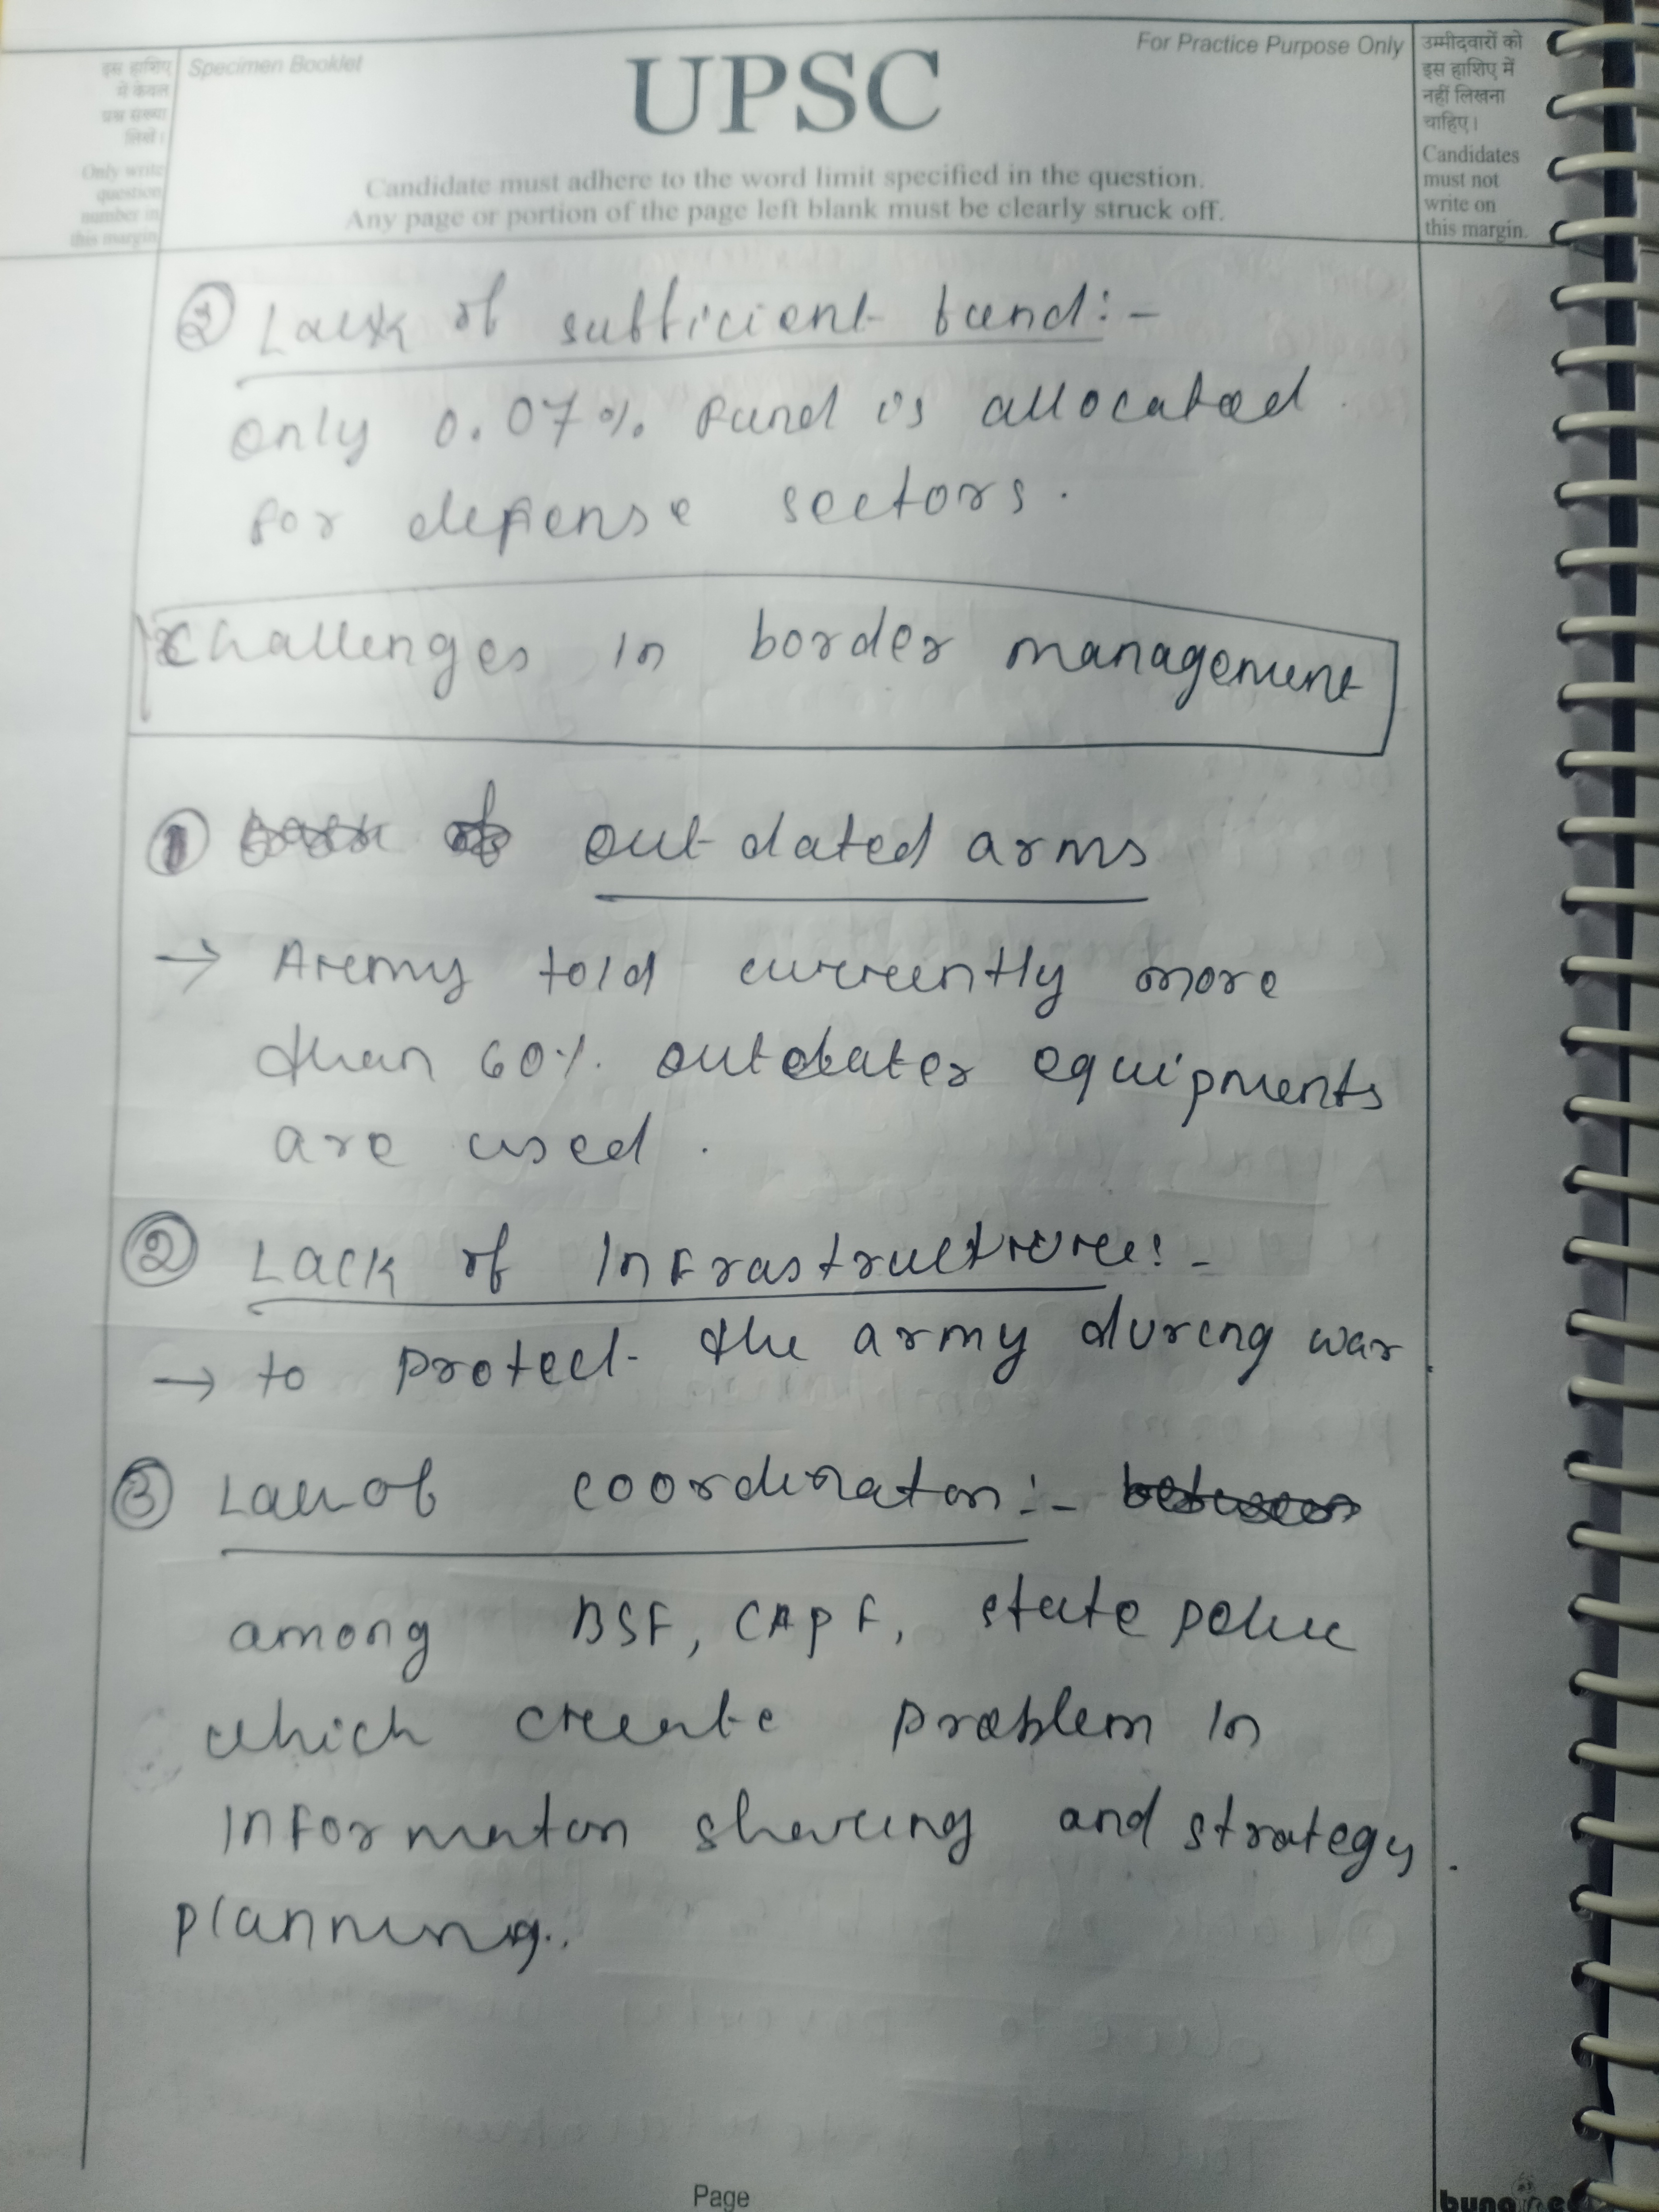 इस हाशिए
में केवल
प्रश्न संख्या
लिखें।
Only write
question
number in
this margin
Specimen Booklet
UPSC
For Practice Purpose Only
Candidate must adhere to the word limit specified in the question.
Any page or portion of the page left blank must be clearly struck off.
उम्मीदवारों को
इस हाशिए में
नहीं लिखना
चाहिए।
Candidates
must not
write on
this margin.
Lack of sufficient fund:-
only 0.07% fund is allocated
for defense sectors.
Challenges in border management
① outdated arms
→ Army told currently more
than 60% outdater equipments
are used.
② Lack of Infrastructure:-
→ to protect the army during war.
③ Lack of coordination:-
among BSF, CAPF, state police
which create problem in
information sharing and strategy
planning.
Page